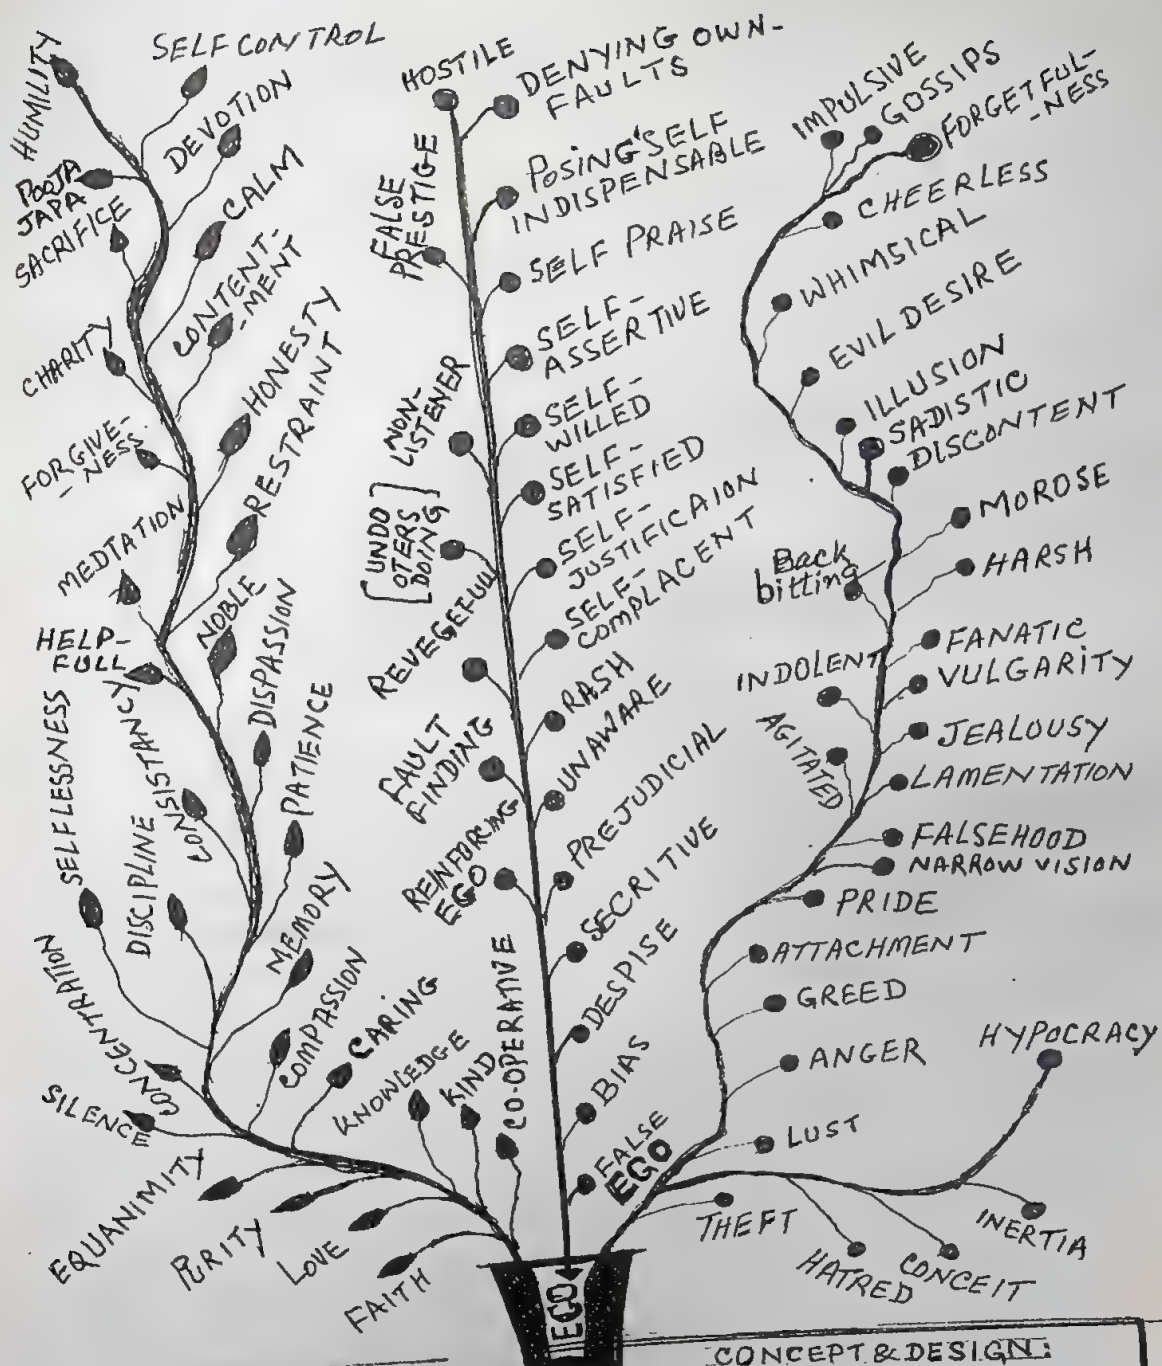 HUMILITY
SELF CONTROL
DEVOTION
POOJA
JAPA
SACRIFICE
CALM
CONTENT-
-MENT
CHARITY
HONESTY
FORGIVE-
-NESS
RESTRAINT
MEDTATION
NOBLE
HELP-
FULL
DISPASSION
SELFLESSNESS
CONSISTANCY
DISCIPLINE
PATIENCE
MEMORY
CONCENTRATION
COMPASSION
CARING
SILENCE
KNOWLEDGE
KIND
CO-OPERATIVE
EQUANIMITY
PURITY
LOVE
FAITH
HOSTILE
DENYING OWN-
FAULTS
FALSE
PRESTIGE
POSING SELF
INDISPENSABLE
SELF PRAISE
SELF-
ASSERTIVE
NON-
LISTENER
SELF-
WILLED
SELF-
SATISFIED
[UNDO
OTERS
DOING]
SELF-
JUSTIFICAION
SELF-
COMPLACENT
REVEGEFUL
RASH
FAULT
FINDING
UNAWARE
PREJUDICIAL
REINFORCING
EGO
SECRITIVE
DESPISE
BIAS
FALSE
EGO
IMPULSIVE
GOSSIPS
FORGETFUL-
-NESS
CHEERLESS
WHIMSICAL
EVIL DESIRE
ILLUSION
SADISTIC
DISCONTENT
MOROSE
Back
bitting
HARSH
FANATIC
INDOLENT
VULGARITY
AGITATED
JEALOUSY
LAMENTATION
FALSEHOOD
NARROW VISION
PRIDE
ATTACHMENT
GREED
ANGER
HYPOCRACY
LUST
THEFT
HATRED
CONCEIT
INERTIA
EGO
CONCEPT & DESIGN: